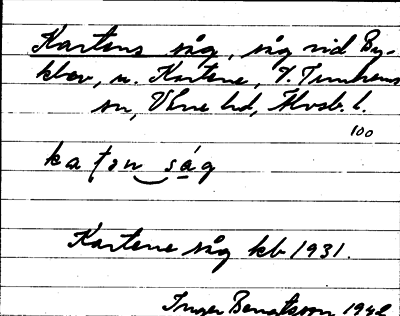 Kartens såg, såg vid By-
klev, n. Kartene, V. Tunhems
sn, Väne hd, Älvsb. l.
100
såg
Kartene såg kb 1931.
Inger Bengtsson 1942